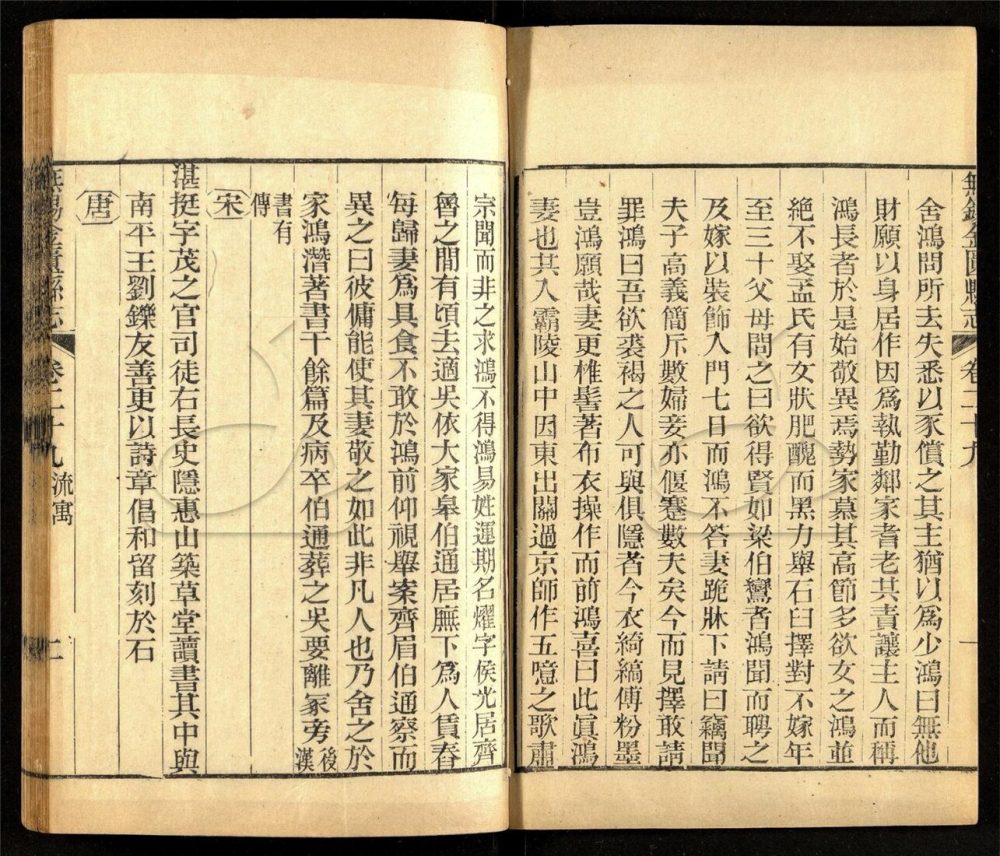 無錫金匱縣志 卷二十九
舍鴻問所去失悉以豕償之其主猶以爲少鴻曰無他
財願以身居作因爲執勤鄰家耆老其責讓主人而稱
鴻長者於是始敬異焉勢家慕其高節多欲女之鴻並
絶不娶孟氏有女狀肥醜而黑力舉石臼擇對不嫁年
至三十父母問之曰欲得賢如梁伯鸞者鴻聞而聘之
及嫁以裝飾入門七日而鴻不答妻跪牀下請曰竊聞
夫子高義簡斥數婦妾亦偃蹇數夫矣今而見擇敢請
罪鴻曰吾欲裘褐之人可與俱隱者今衣綺縞傅粉墨
豈鴻願哉妻更椎髻著布衣操作而前鴻喜曰此眞鴻
妻也其入霸陵山中因東出關過京師作五噫之歌肅
宗聞而非之求鴻不得鴻易姓運期名燿字侯光居齊
魯之間有頃去適吳依大家皋伯通居廡下爲人賃舂
每歸妻爲具食不敢於鴻前仰視舉案齊眉伯通察而
異之曰彼傭能使其妻敬之如此非凡人也乃舍之於
家鴻潛著書十餘篇及病卒伯通葬之吳要離冢旁後漢
書有傳
宋
湛挺字茂之官司徒右長史隱惠山築草堂讀書其中與
南平王劉鑠友善更以詩章倡和留刻於石
唐
無錫金匱縣志 卷二十九 流寓 二